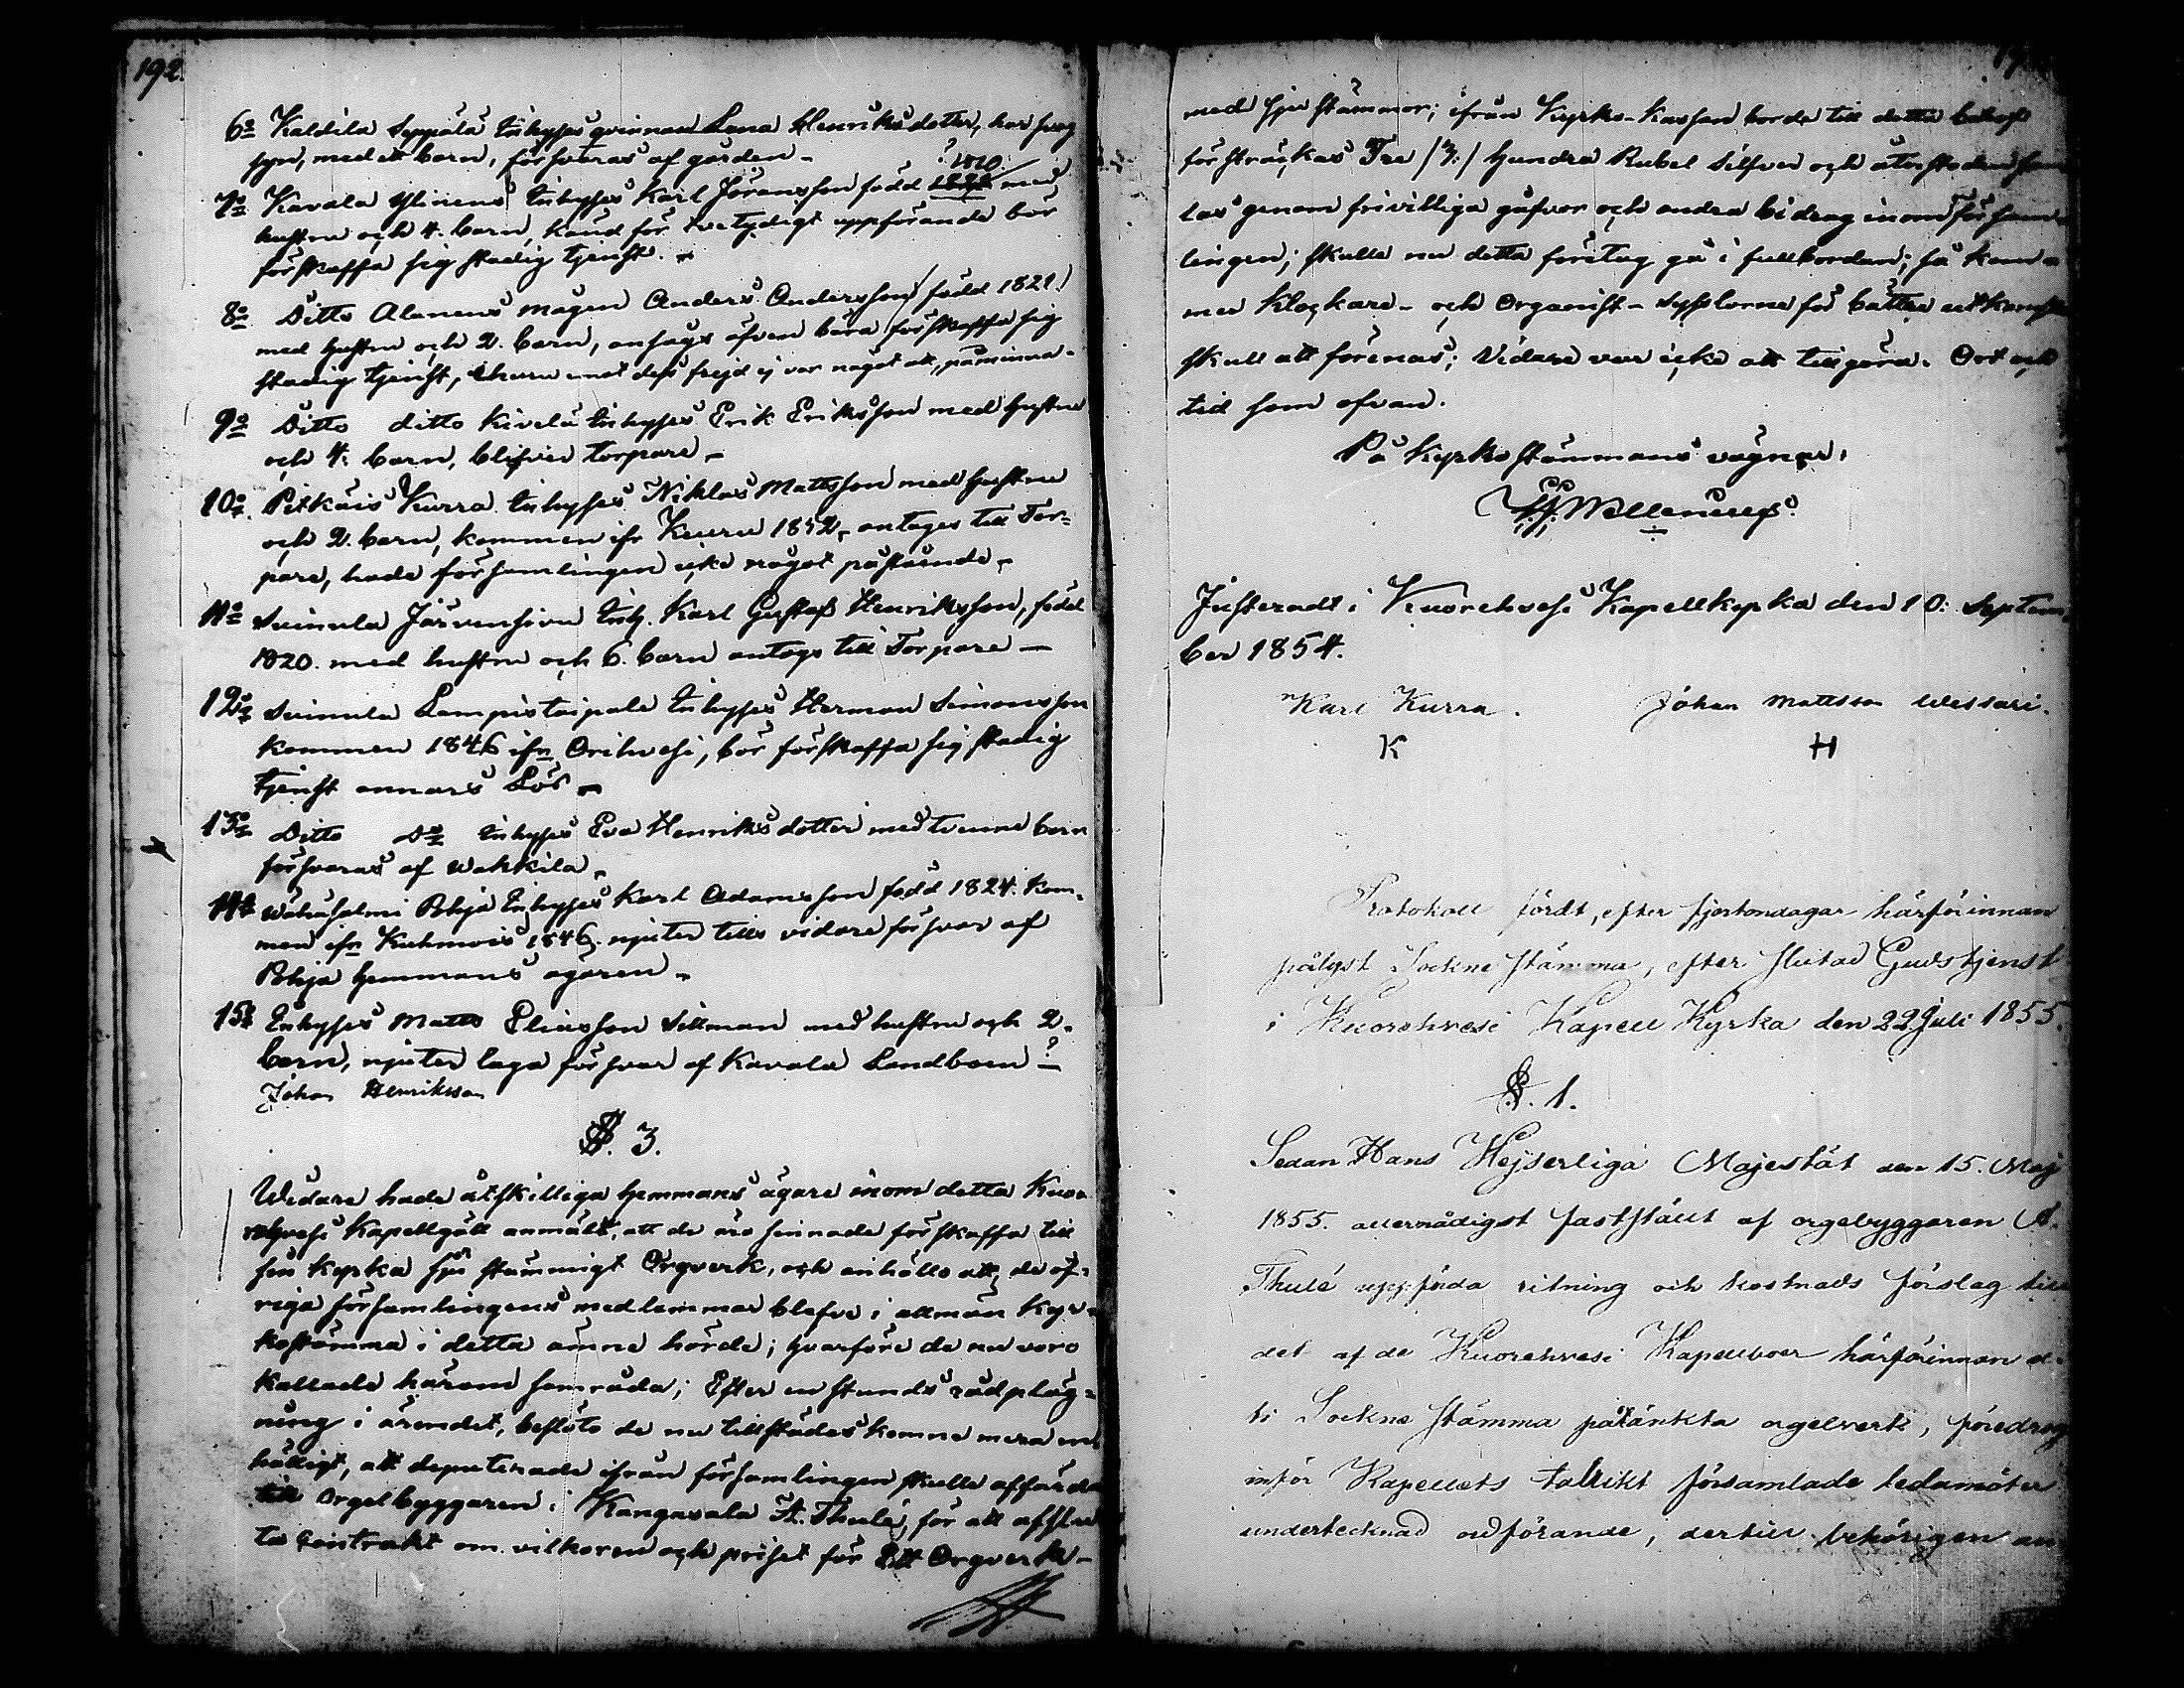 192.
6o Kaldila Seppälä Inhyses qvinnan Lena Henriksdotter, har svag
syn, med ett barn, försvaras af gården.
? 1810.
7o Kavala Ylinens Inhyses Karl Göransson född med
hustru och 4. barn, känd för tvetydigt uppförande bör
förskaffa sig stadig tjenst.
8o Ditto Alanens mågen Anders Andersson / född 1821 /
med hustru och 2. barn, ansågs äfven böra förskaffa sig
stadig tjenst, ehuru mot dess frejd ej var något att påminna.
9o Ditto ditto Kivelä Inhyses Erik Eriksson med hustru
och 4. barn, blifver torpare.
10o Pitkäis Kurra Inhyses Niklas Mattsson med hustru
och 2. barn, kommen ifr Kuru 1852, antages till Tor-
pare, hade församlingen icke något påstående.
11o Suinula Järvensivu Inh. Karl Gustaf Henriksson, född
1820. med hustru och 6. barn antogs till Torpare
12o Suinula Lampistaipale Inhyses Herman Simonsson
kommen 1846 ifn Orihvesi, bör förskaffa sig stadig
tjenst annars Lös.
13o Ditto Do Inhyses Eva Henriksdotter med tvenne barn
försvaras af Wahkila.
14o Wähäsalmi Pohja Inhyses Karl Adamsson född 1824. kom-
men ifn Kuhmois 1846. njuter tills vidare försvar af
Pohja hemmans ägaren.
15o Inhyses Matts Eliasson Sillman med hustru och 2.
barn, njuter laga försvar af Kavala Landboen ?
Johan Henriksson
§. 3.
Widare hade åtskilliga hemmans ägare inom detta Kuo-
rehvesi Kapellgäll anmält, att de äro sinnade förskaffa till
sin kyrka sju stämmigt Orgverk, och anhöllo att, de öf-
riga församlingens medlemmar blefve i allmän kyr-
kostämma i detta ämne hörde; hvarföre de nu voro
kallade härom samråda; Efter en stunds rådpläg-
ning i ärendet, beslöto de nu tillstädes komne mera en-
hälligt, att deputerade ifrån församlingen skulle affärdas
till Orgelbyggaren i Kangasala A. Thulé, för att afslu-
ta contrakt om vilkoren och priset för Ett Orgverk
med sju stämmor; ifrån Kyrko-Kassan borde till detta behof
försträckas Tre /3:/ hundra Rubel Silfver och återstoden sam-
las genom frivilliga gåfvor och andra bidrag inom försam-
lingen; skulle nu detta företag gå i fullbordan; så kom-
me Klockare- och Organist-sysslorna för bättre utkomst
skull att förenas; Vidare var icke att tillgöra. Ort och
tid som ofvan.
På Kyrkostämmans vägnar,
Justeradt i Kuorehvesi Kapellkyrka den 10: Septem-
ber 1854.
Karl Kurra. Johan Mattsson Wessari.
K H
Protokoll fördt, efter fjortondagar härförinnan
pålyst Sockne stämma, efter slutad Gudstjenst
i Kuorehvesi Kapell Kyrka den 22 Juli 1855.
§. 1.
Sedan Hans Kejserliga Majestät den 15. Maj
1855. allernådigst fastställt af orgebyggaren A.
Thulé uppgjöda ritning och kostnads förslag till
det af de Kuorehvesi Kapellboer härförinnan å
ti Sockne stämma påtänkta orgelverk, föredrog
inför Kapellets talrikt församlade ledamöter
undertecknad ordförande, dertill behörigen an